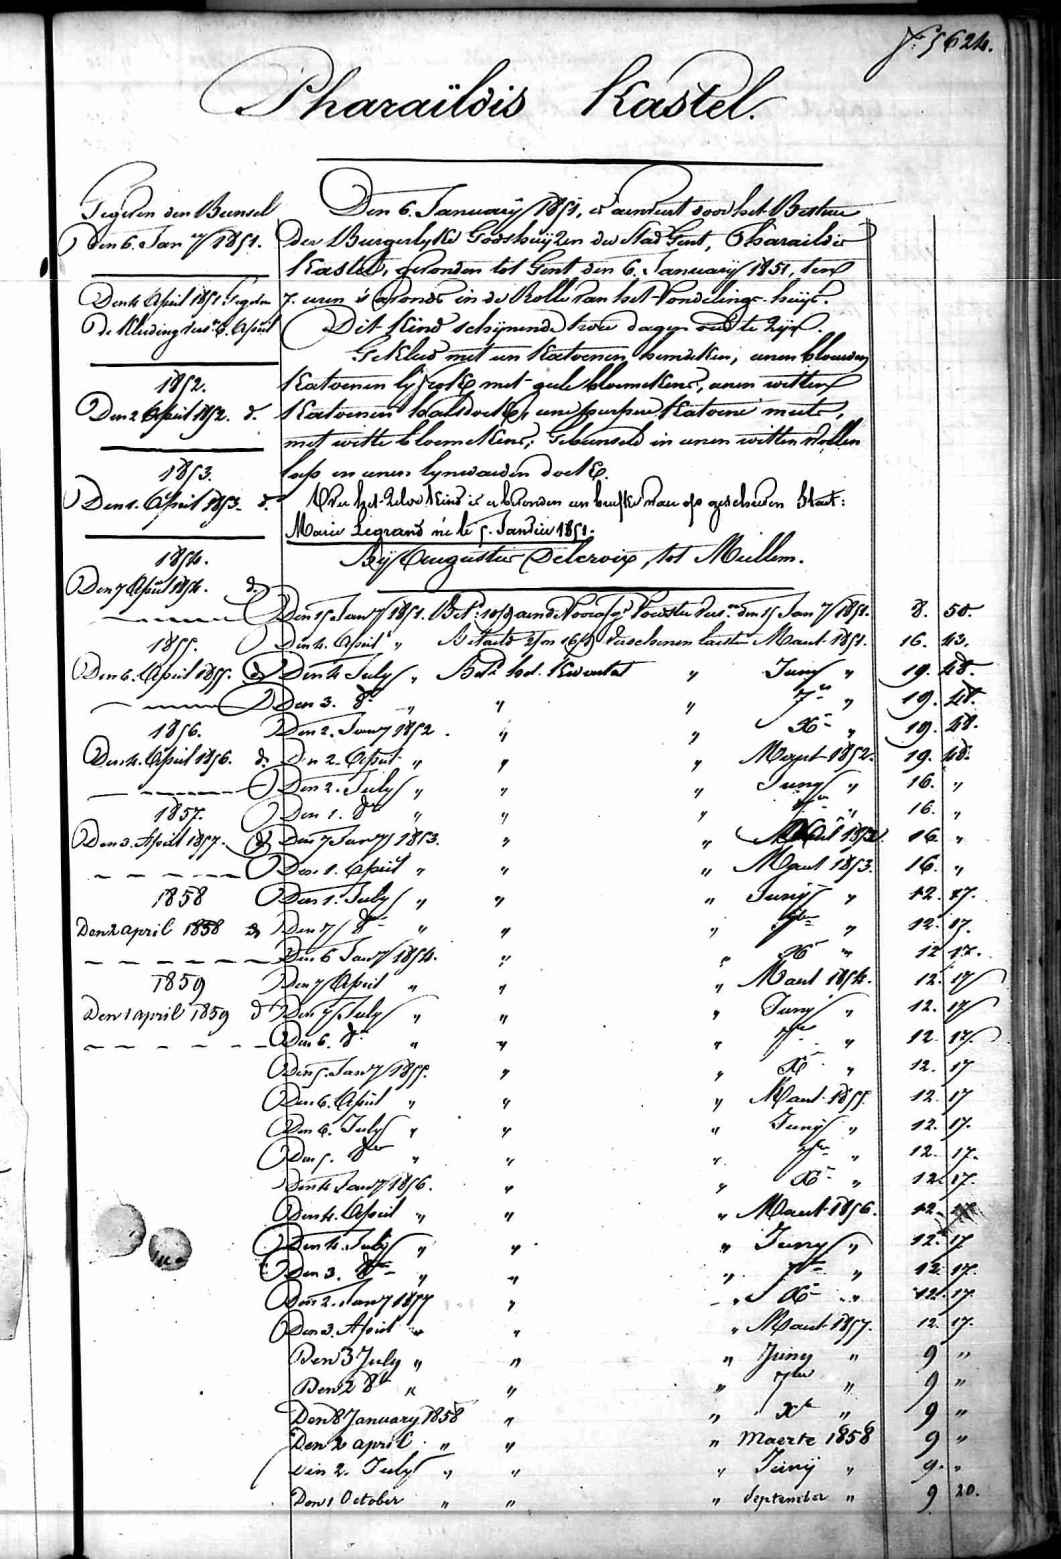 5624.
Pharaïldis Kastel.
Gegeven den Bunsel
den 6. Jan.ry 1851.
Den 4 April 1851 Gegeven
de Kleeding
1852.
Den 2 April 1852. d.
1853.
Den 1. April 1853. d.
1854.
Den 7 April 1854. d.
1855.
Den 6. April 1855. d.
1856.
Den 4. April 1856. d.
1857.
Den 3. April 1857. d.
1858
Den 2 april 1858 d.
1859
Den 1 april 1859 d.
Den 6. January 1851, is aenveert door het Bestuer
der Burgerlyke Godshuyzen der Stad Gent, Pharaildis
Kastel, gevonden tot Gent den 6. January 1851, ten
7. uren 's avonds in de Rolle van het Vondelings-huys.
Dit Kind schynende twee dagen oud te zyn.
Gekleed met een Katoenen hemdeken, eenen blouwen
Katoenen lyfrok met gele bloemekens, eenen witten
Katoenen halsdoek, eene purpere Katoene muts,
met witte bloemekens; Gebunseld in eenen witten wollen
lap en eenen lynwaeden doek.
het zelve Kind is gevonden een briefke waer op geschreven Staet:
Marie Legrand née le 5. Janvier 1851.
Bij Augustus Delcroix, tot Mullem.
Den 15 Jan.ry 1851. den 15 Jan.ry 1851. 8. 50.
Den 4. April " Betaeld verschenen laeste Maert 1851. 16. 43.
Den 4 July " Bet.d het Kwartael " Juny " 19. 48.
Den 3. 8.r " " " 7.re " 19. 48.
Den 2. Jan.ry 1852. " " X.r " 19. 48.
Den 2. April " " " Maert 1852. 19. 48.
Den 2. July " " " Juny " 16. "
Den 1. 8.r " " " 7.re " 16. "
Den 7 Jan.ry 1853. " " 16 "
Den 1. April " " " Maert 1853. 16. "
Den 1. July " " " Juny " 12. 17.
Den 7 8.r " " " 7.re " 12. 17.
Den 6 Jan.ry 1854. " " X.r " 12 17.
Den 7 April " " " Maert 1854. 12. 17
Den 7 July " " " Juny " 12. 17
Den 6. 8.r " " " 7.re " 12. 17.
Den 5. Jan.ry 1855. " " X.r " 12. 17
Den 6. April " " " Maert 1855 12. 17
Den 6. July " " " Juny " 12. 17.
Den 5. 8.re " " " 7.re " 12. 17.
Den 4 Jan.ry 1856. " " X.r " 12. 17.
Den 4. April " " " Maert 1856. 12. 17.
Den 4. July " " " Juny " 12. 17
Den 3. 8.re " " " 7.re " 12. 17.
Den 2. Jan.ry 1857 " " X.r " 12. 17.
Den 3. April " " " Maert 1857. 12. 17.
Den 3 July " " " Juny " 9 "
Den 2 8.r " " " 7.re " 9 "
Den 8 January 1858 " " X.r " 9 "
Den 2 april " " " Maerte 1858 9 "
Den 2. July " " " Junij " 9. "
Den 1 October " " " September " 9 20.